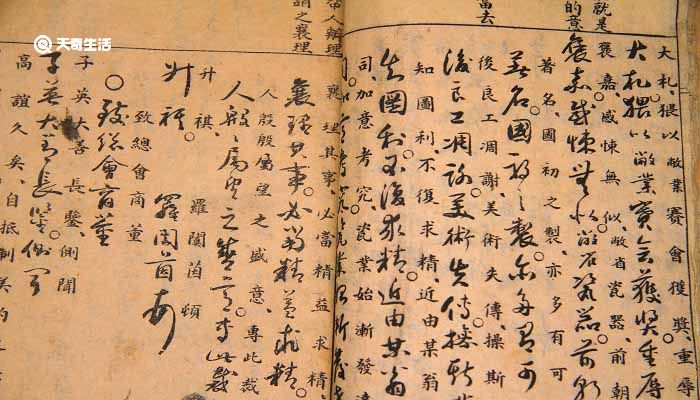 就是
的意
當去
大札、猥以敝業賽會獲獎、重辱
大札。猥以敝業賽會獲獎。重辱
褒嘉、感悚無似、敝省瓷器、前朝
褒嘉。感悚無似。敝省瓷器。前朝
著名、國初之製、亦多有可
著名。國初之製。亦多有可
後良工凋謝、美術失傳、操斯
後良工凋謝。美術失傳。操斯業
知圖利、不復求精、近由某翁
知圖利。不復求精。近由某翁
司、加意考究、瓷業始漸發達
帝人辦理
謂之襄理
襄理其事、必當精益求精
襄理其事。必當精益求精
人殷殷屬望之盛意、專此裁
人殷殷屬望之盛意。專此裁
升祺、羅閩茵頓
升祺 羅閩茵頓
致總會商董
致總會商董
子英大善長鑒、側聞
子英大善長鑒。側聞
高誼久矣、自抵制美約
天奇生活